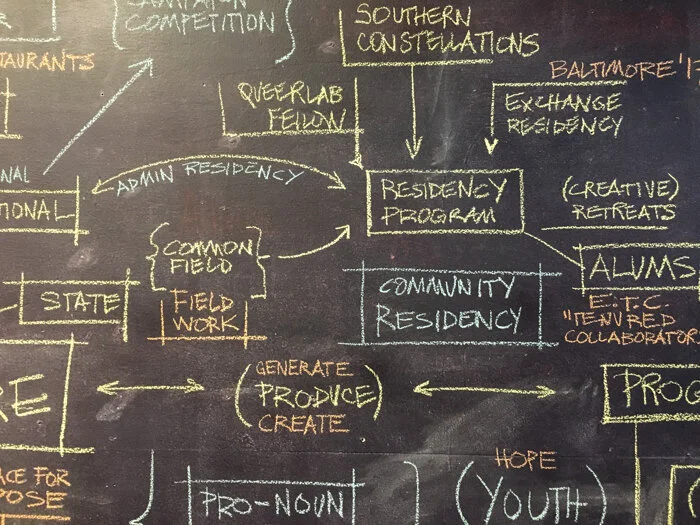 COMPETITION
SOUTHERN
CONSTELLATIONS
TAURANTS
BALTIMORE '1
QUEERLAB
FELLOW
EXCHANGE
RESIDENCY
NAL
ADMIN RESIDENCY
TIONAL
RESIDENCY
PROGRAM
(CREATIVE)
RETREATS
{COMMON
FIELD}
ALUMS
STATE
FIELD
WORK
COMMUNITY
RESIDENCY
E.T.C.
"TENURED
COLLABORATOR
RE
GENERATE
(PRODUCE)
CREATE
PROG
ACE FOR
POSE
PRO-NOUN
HOPE
(YOUTH)